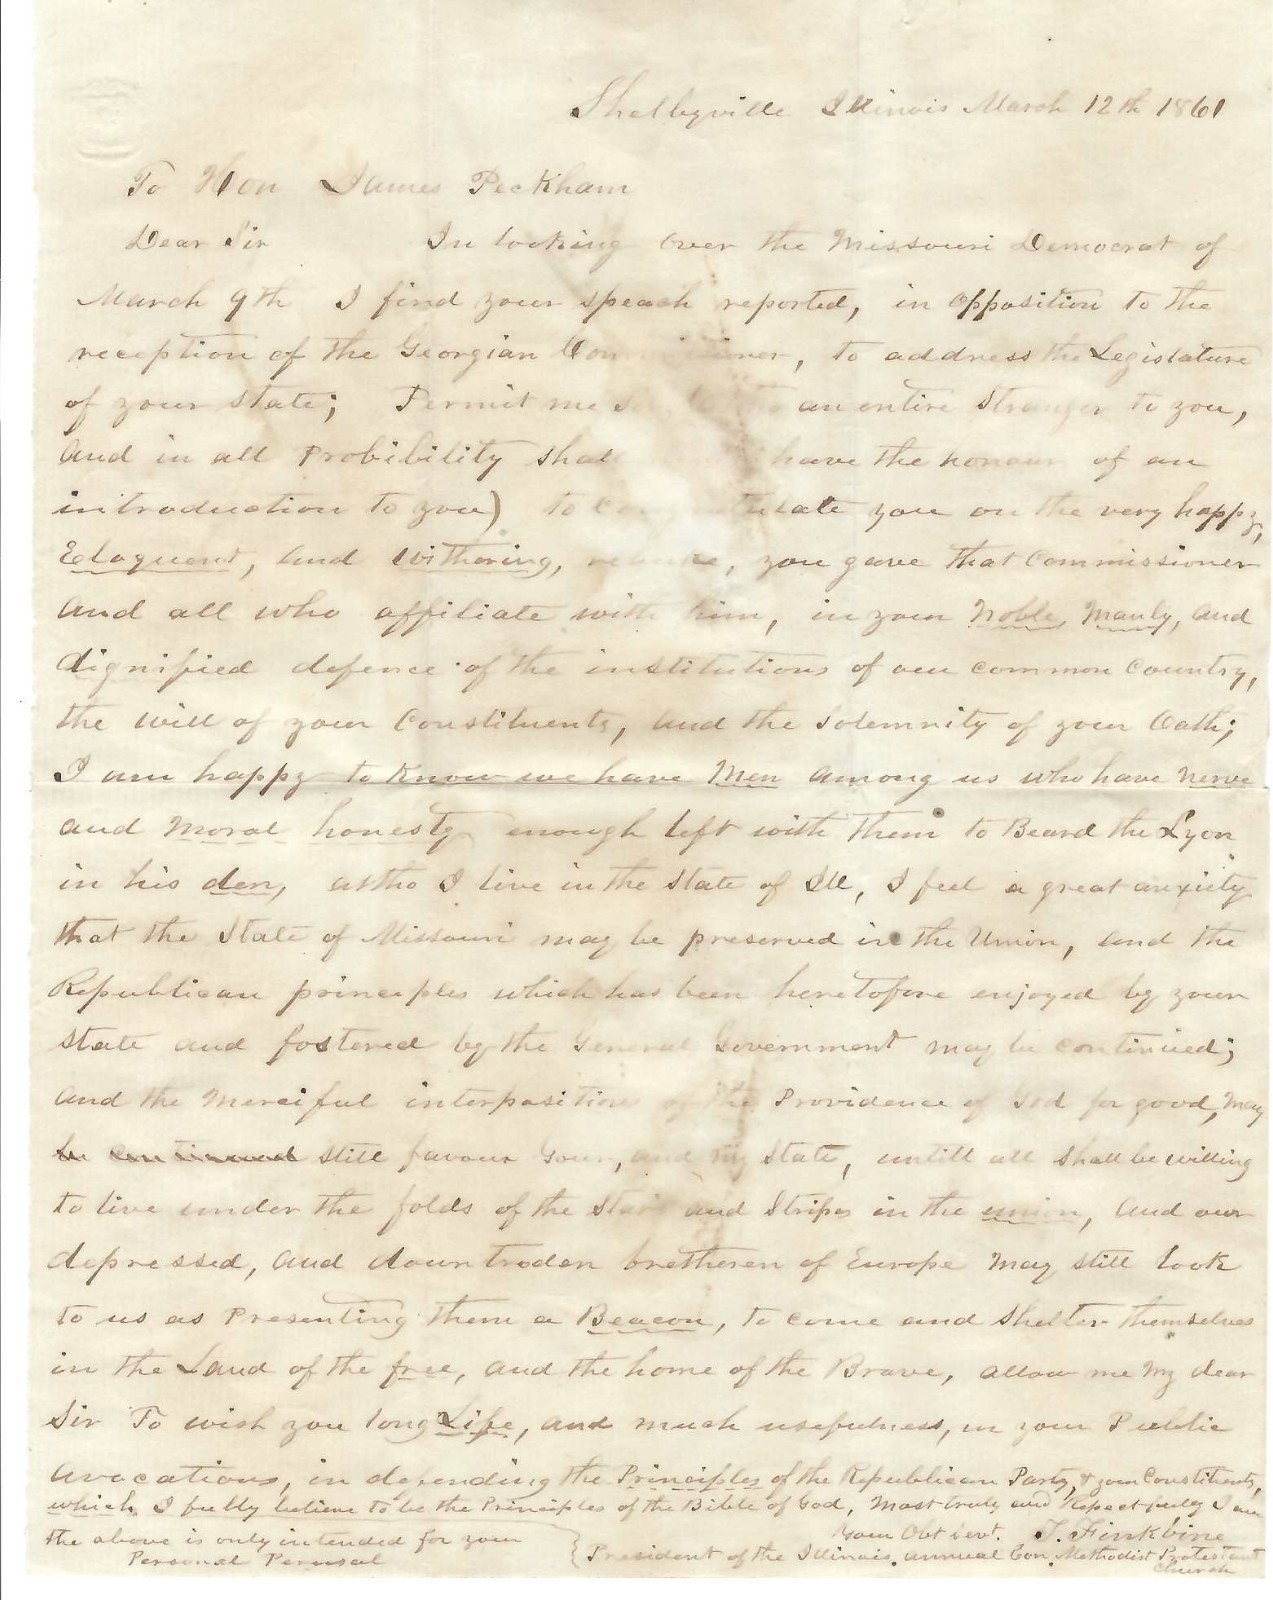 Shelbyville Illinois March 12th 1861
To Hon James Peckham
Dear Sir In looking over the Missouri Democrat of
March 9th I find your speach reported, in opposition to the
reception of the Georgian Commissioner, to address the Legislature
of your State; Permit me an entire Stranger to you,
and in all Probibility shall have the honour of an
introduction to you) to you on the very happy,
Eloquent, and withering, rebuke, you gave that Commissioner
and all who affiliate with him, in your Noble, Manly, and
dignified defence of the institutions of our common Country,
the will of your Constituents, and the Solemnity of your Oath;
I am happy to know we have Men among us who have nerve
and Moral honesty enough left with them to Beard the Lyon
in his den, altho I live in the State of Ill, I feel a great anxiety
that the State of Missouri may be preserved in the Union, and the
Republican principles which has been heretofore enjoyed by your
State and fostered by the General Government may be continued;
and the Merciful interposition of the Providence of God for good, May
be continued still favour Your, and my State, untill all shall be willing
to live under the folds of the Stars and Stripes in the union, and our
depressed, and downtroden bretheren of Europe May still look
to us as Presenting them a Beacon, to come and shelter themselves
in the Land of the free, and the home of the Brave, allow me My dear
Sir To wish you long Life, and much usefulness, in your Public
avocations, in defending the Principles of the Republican Party, & your Constituents,
which I fully believe to be the Principles of the Bible of God, Most truly and Respectfully I am
your Obt Servt. J. Finkbine
the above is only intended for your
Personal Perusal
President of the Illinois annual Con. Methodist Protestant
Church